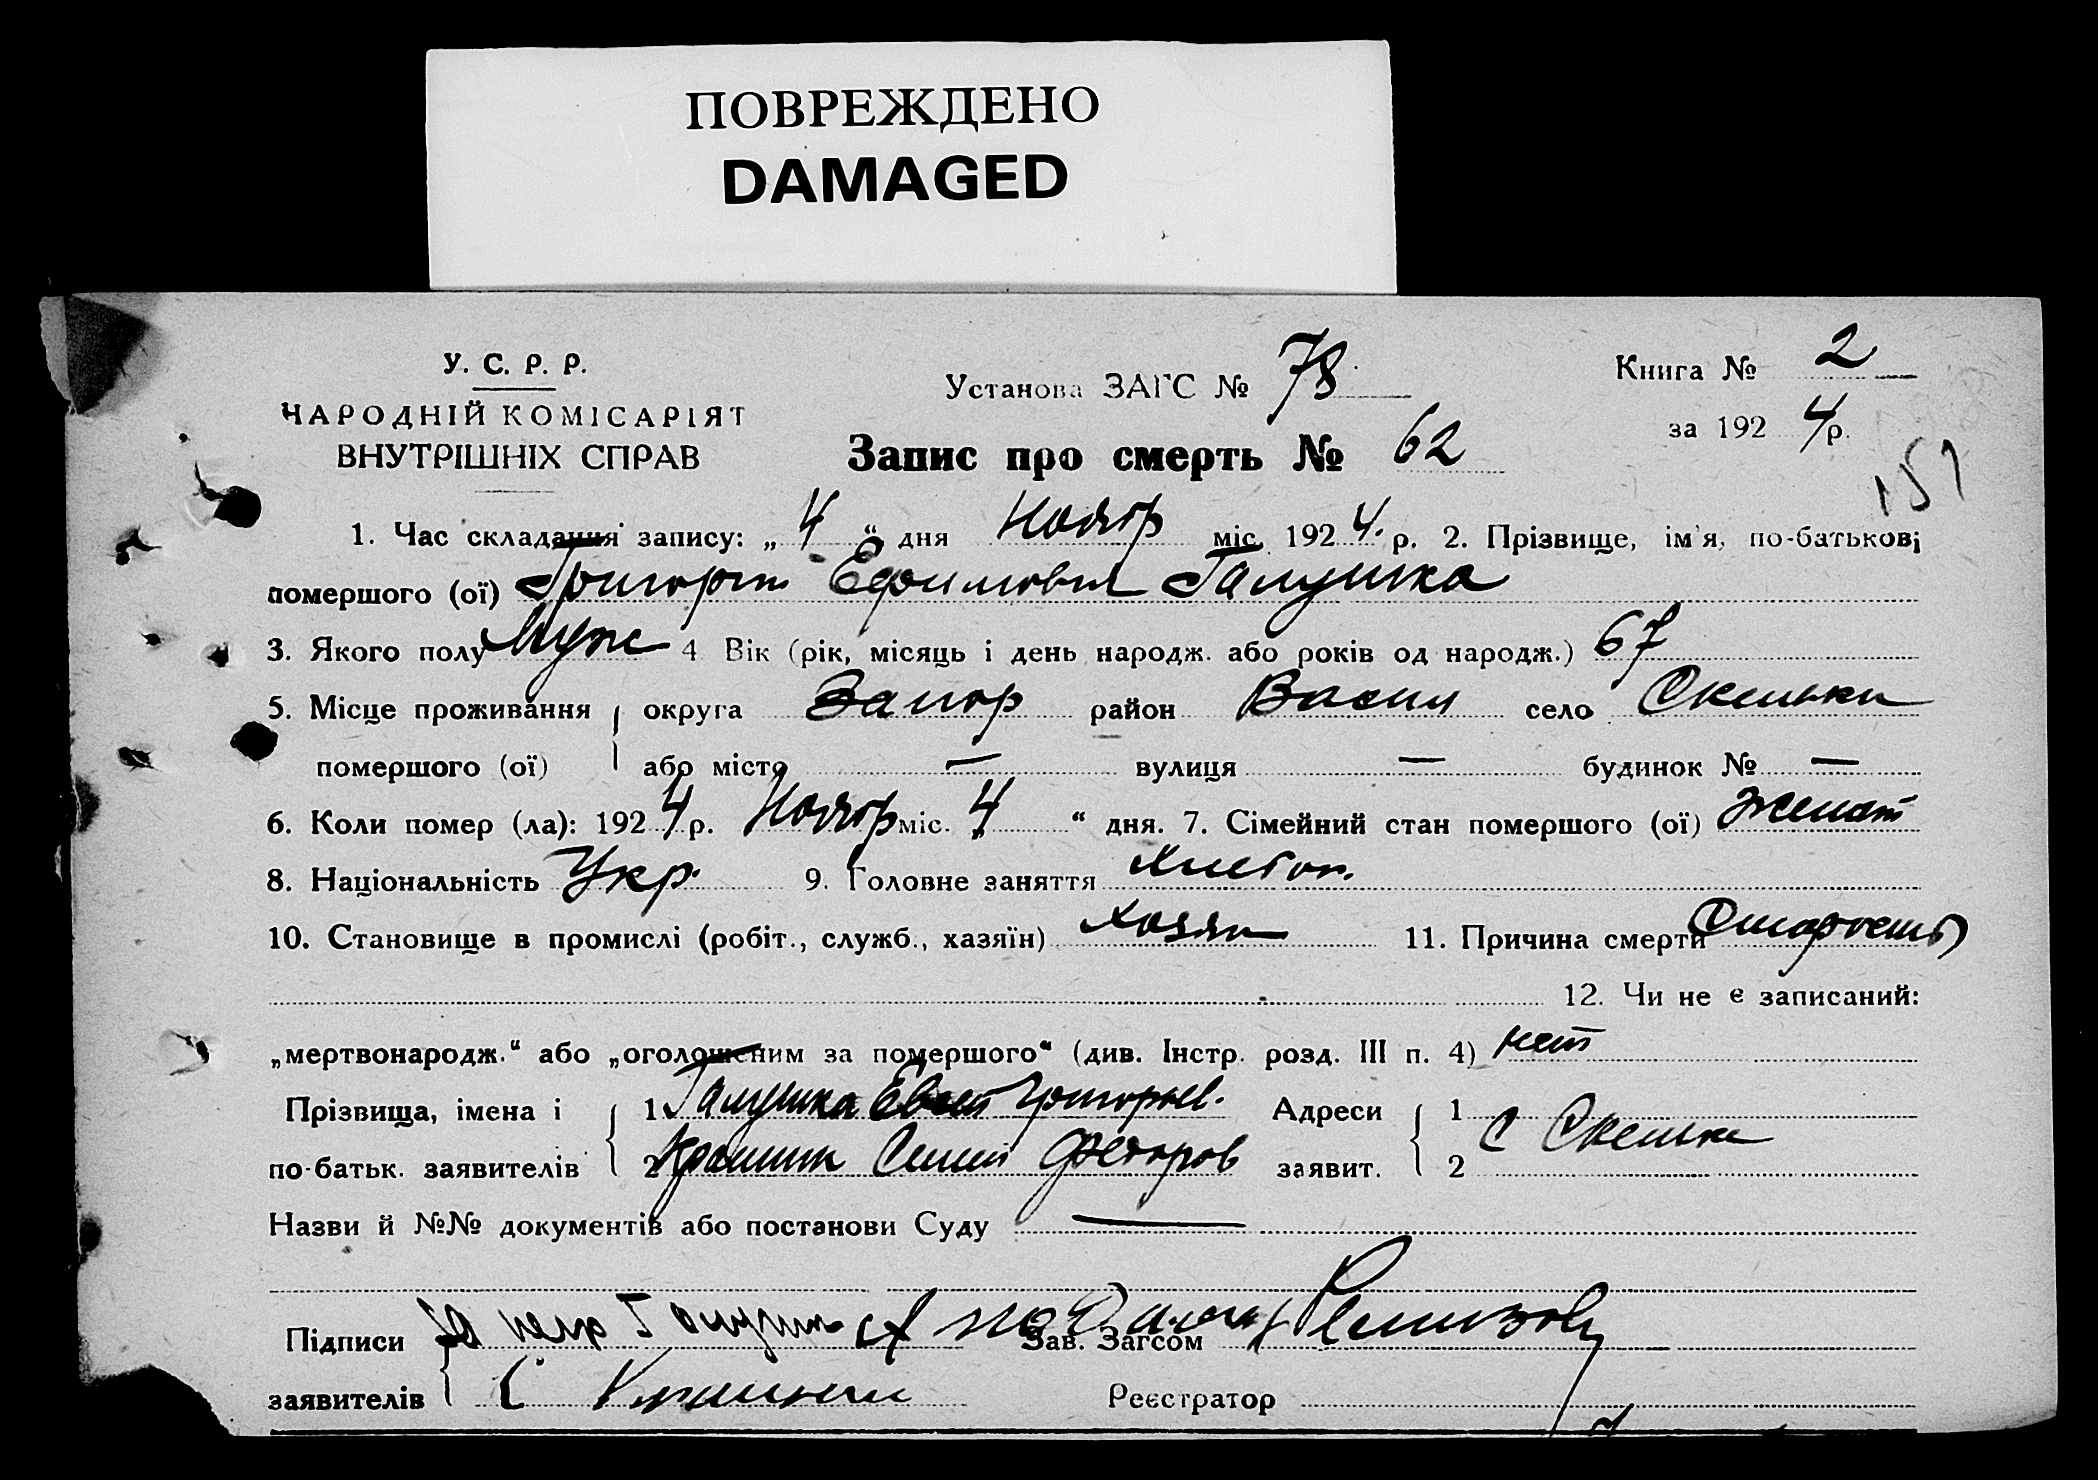 ПОВРЕЖДЕНО
DAMAGED
У. С. Р. Р.
НАРОДНІЙ КОМІСАРІЯТ
ВНУТРІШНІХ СПРАВ
Установа ЗАГС № 78
Книга № 2
за 1924 р.
Запис про смерть № 62
151
1. Час складання запису: „ 4 “ дня Ноябр міс. 1924. р. 2. Прізвище, ім'я, по-батькові
помершого (ої) Григорий Ефимович Галушка
3. Якого полу Муж 4 Вік (рік, місяць і день народж. або років од народж.) 67
5. Місце проживання округа Запор район Васил село Скельки
помершого (ої) або місто — вулиця — будинок № —
6. Коли помер (ла): 1924 р. Ноябр міс. 4 “ дня. 7. Сімейний стан помершого (ої) Женат
8. Національність Укр. 9. Головне заняття Хлебоп.
10. Становище в промислі (робіт., служб., хазяїн) Хозяин 11. Причина смерти Старость
12. Чи не є записаний:
„мертвонародж.“ або „оголошеним за помершого“ (див. Інстр. розд. III п. 4) нет
Прізвища, імена і 1 Галушка Григорьев. Адреси 1
по-батьк. заявителів 2 Федоров заявит. 2 с Скельки
Назви й №№ документів або постанови Суду —
Підписи Зав. Загсом
заявителів Реєстратор